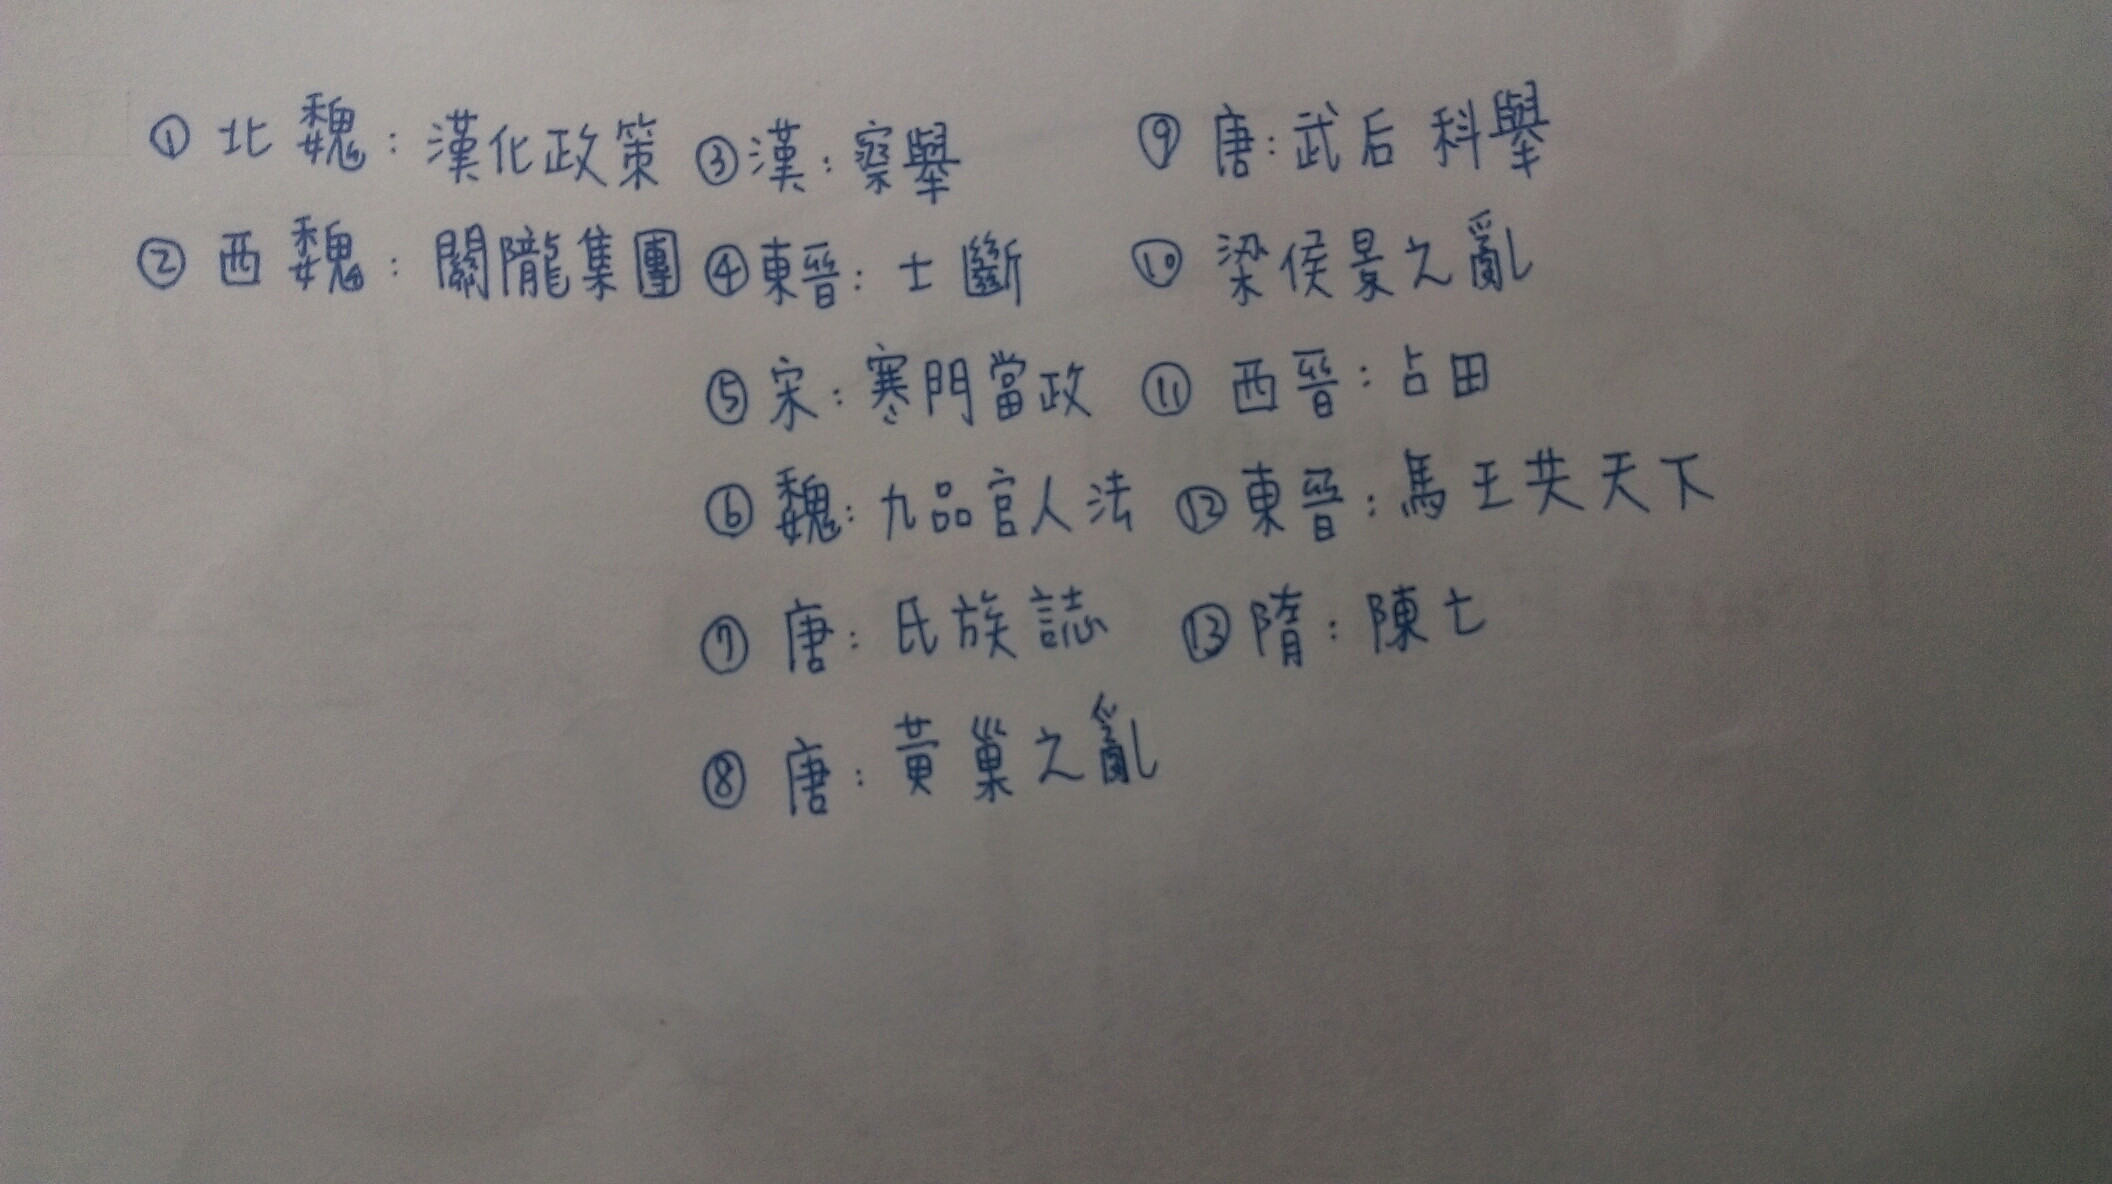 ① 北魏：漢化政策
② 西魏：關隴集團
③ 漢：察舉
④ 東晉：士斷
⑤ 宋：寒門當政
⑥ 魏：九品官人法
⑦ 唐：氏族誌
⑧ 唐：黃巢之亂
⑨ 唐：武后科舉
⑩ 梁侯景之亂
⑪ 西晉：占田
⑫ 東晉：馬王共天下
⑬ 隋：陳亡